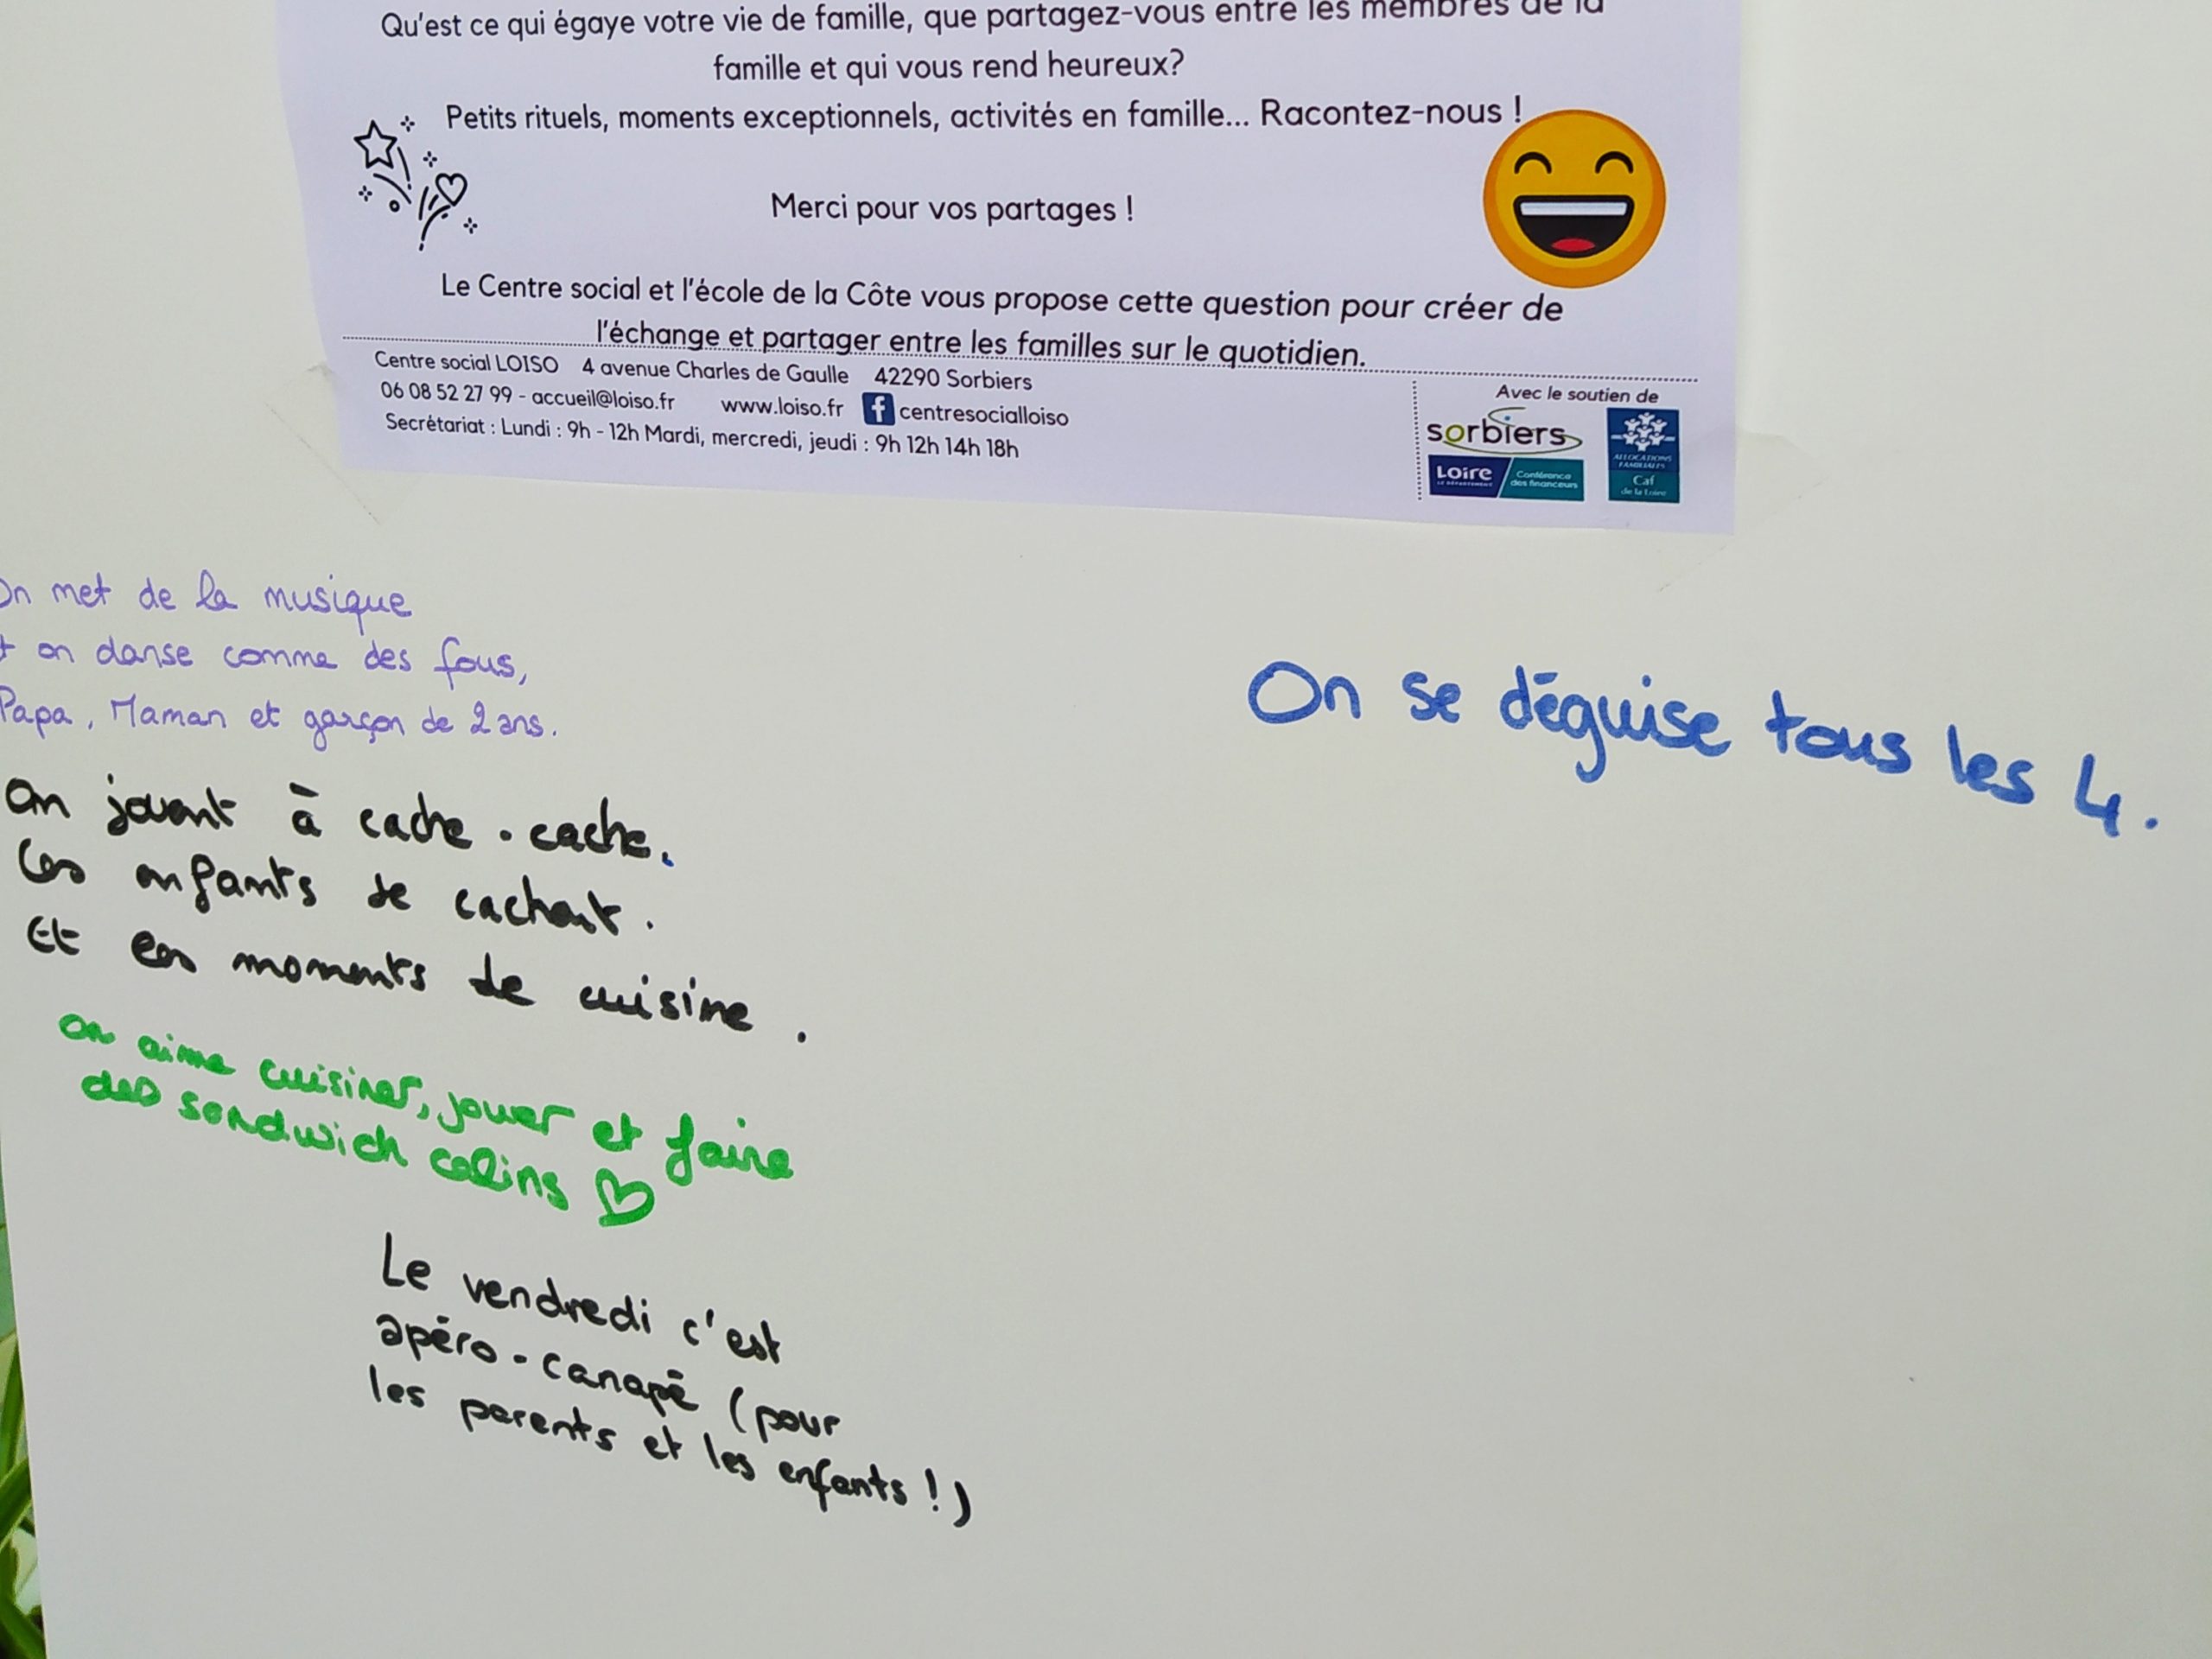 Qu'est ce qui égaye votre vie de famille, que partagez-vous entre les membres de la
famille et qui vous rend heureux?
Petits rituels, moments exceptionnels, activités en famille... Racontez-nous !
Merci pour vos partages !
Le Centre social et l'école de la Côte vous propose cette question pour créer de
l'échange et partager entre les familles sur le quotidien.
Centre social LOISO 4 avenue Charles de Gaulle 42290 Sorbiers
06 08 52 27 99 - accueil@loiso.fr www.loiso.fr f centresocialloiso
Secrétariat : Lundi : 9h - 12h Mardi, mercredi, jeudi : 9h 12h 14h 18h
Avec le soutien de
sorbiers
Loire
LE DÉPARTEMENT
Conférence
des financeurs
ALLOCATIONS
FAMILIALES
Caf
de la Loire
On met de la musique
et on danse comme des fous,
Papa, Maman et garçon de 2 ans.
On se déguise tous les 4.
En jouant à cache-cache.
Les enfants se cachent.
Et en moments de cuisine.
On aime cuisiner, jouer et faire
des sandwich calins ♡
Le vendredi c'est
apéro-canapé (pour
les parents et les enfants !)